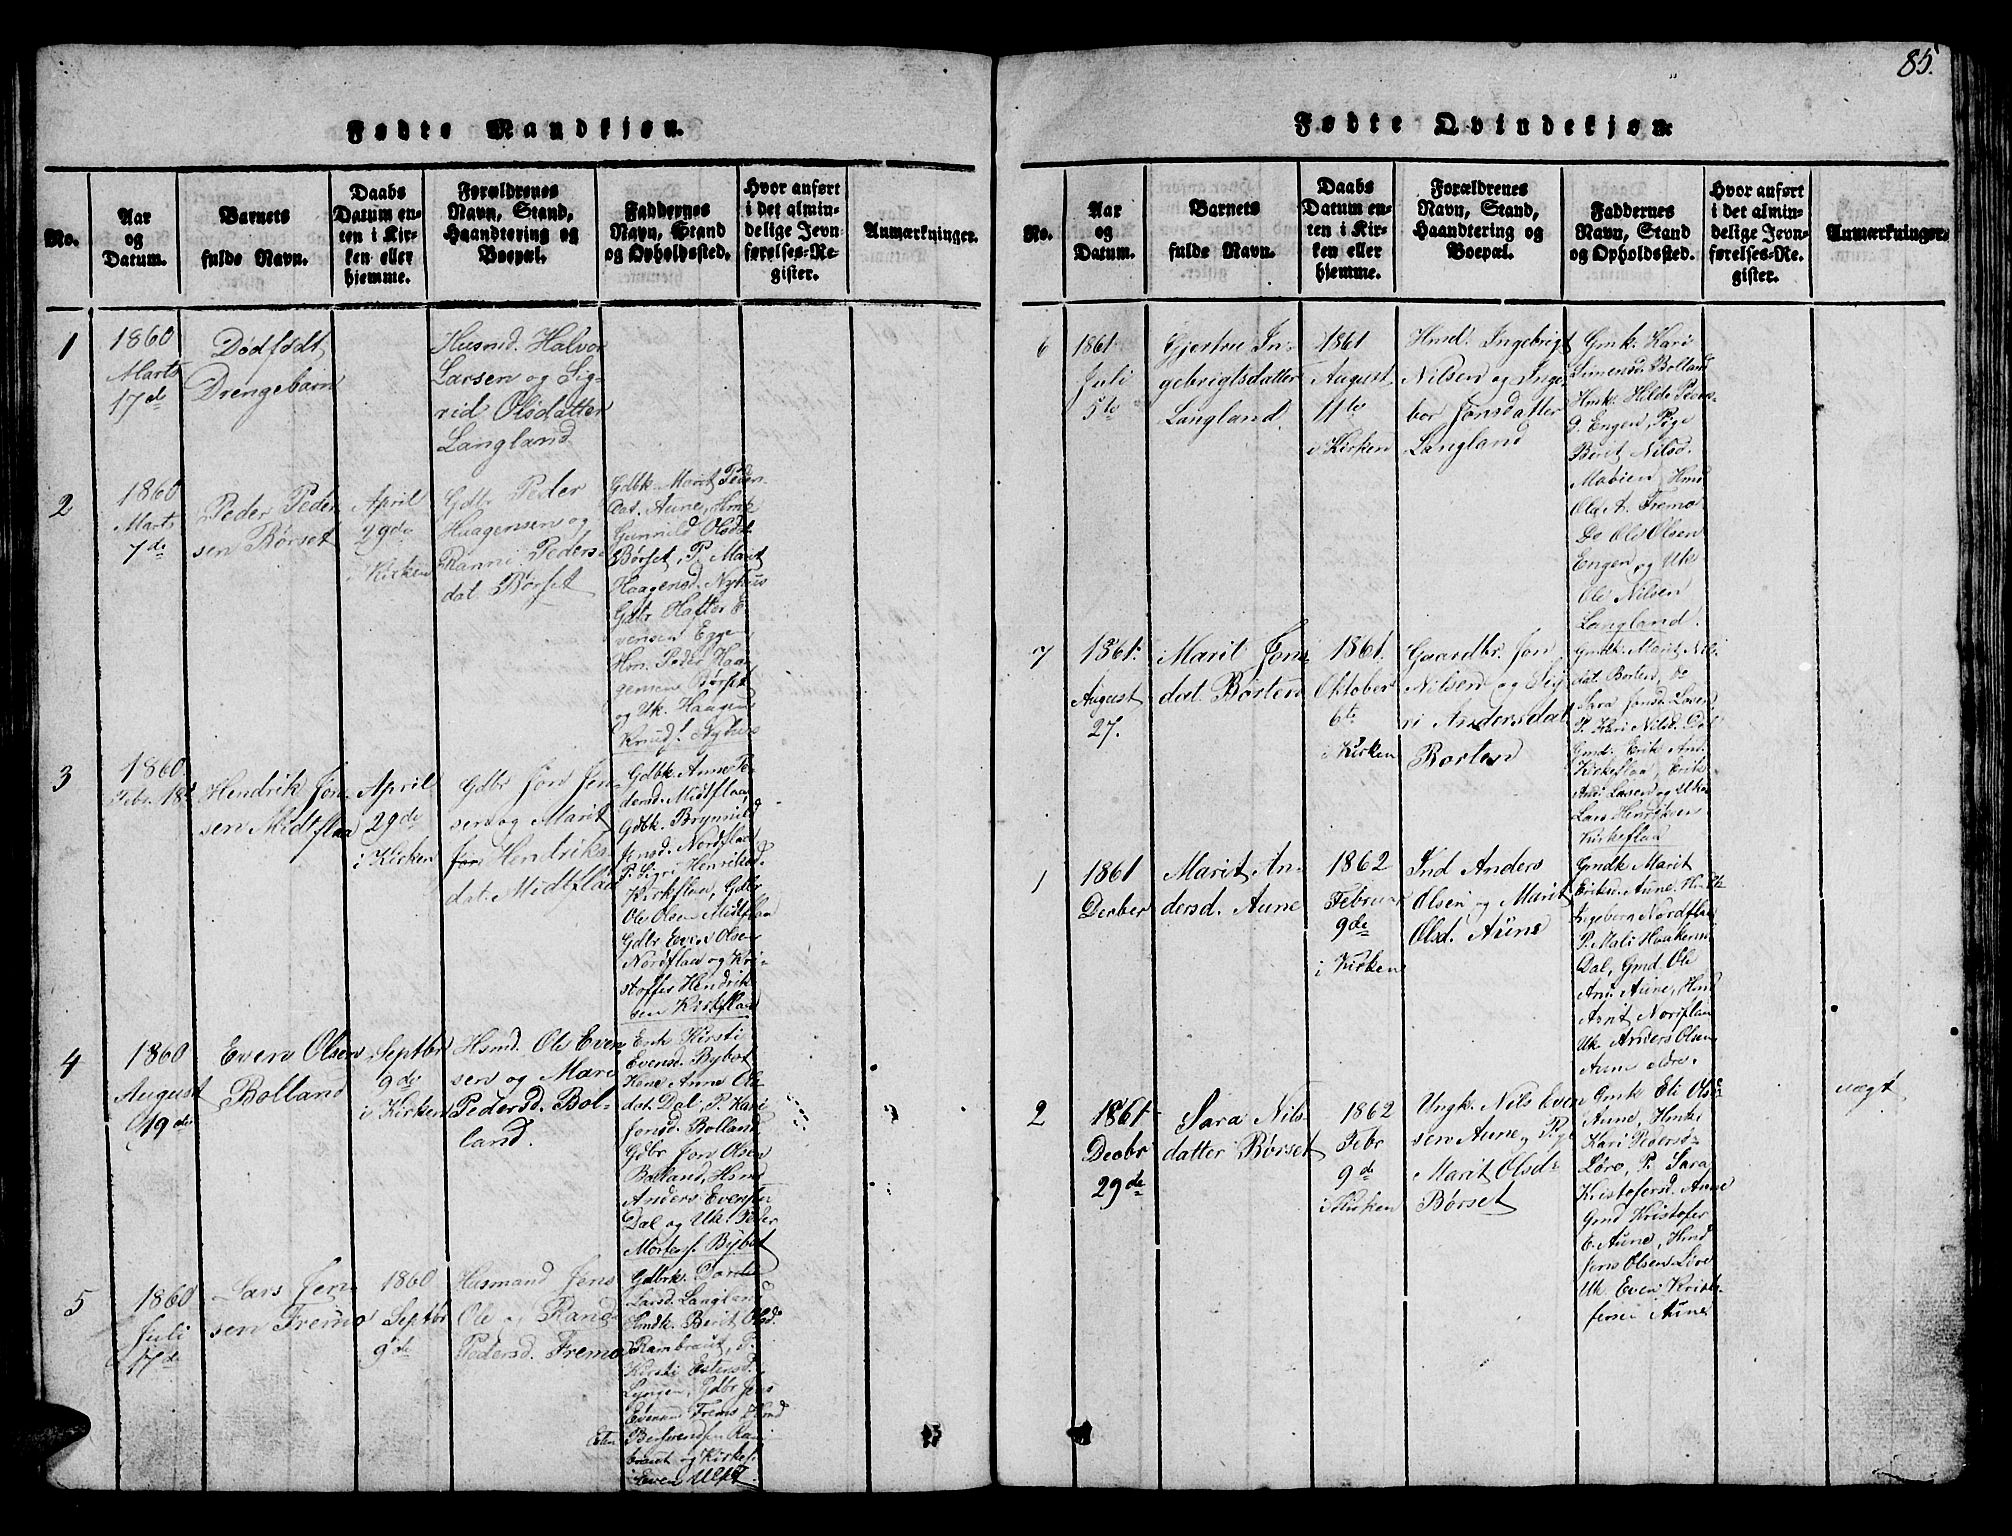 85.
Fødte Mandkjøn.
No.
Aar
og
Datum.
Barnets
fulde Navn.
Daabs
Datum en-
ten i Kir-
ken eller
hjemme.
Forældrenes
Navn, Stand,
Haandtering og
Boepæl.
Faddernes
Navn, Stand
og Opholdssted.
Hvor anført
i det almin-
delige Jevn-
førelses-Re-
gister.
Anmærkninger.
1
1860
Marts
17de
Dødfødt
Drengebarn
Husmd. Halvor
Larsen og Sig-
rid Olsdatter
Langland
2
1860
Marts
7de
Peder Peder
sen Børset
April
29de
i Kirken
Gdbr. Peder
Haagensen og
Ranni Peders-
dat. Børset
Gdbk. Marit Peder
dat. Aune, Hmk
Gunnild Olsdt
Børset, P. Marit
Haagensd. Nyhus
Gdbr Hafter E-
vensen Eggen
Hm. Peder Haa
gensen Børset
og Uk. Haagen
Knud. Nyhus
3
1860
Febr. 18d
Hendrik Jon-
sen Midtflaa
April
29de
i Kirken
Gdbr Jon Jen-
sen og Marit
Hendriks
dat. Midtflaa
Gdbk. Anne Pe
dersd. Midtflaa,
Gdbk. Brynnild
Jensd. Nordflaa
P. Sigri Henriksd.
Kirkflaa, Gdbr
Ole Olsen Midtflaa
Gdbr Even Olsen
Nordflaa og Kri-
stoffer Hendrik
sen Kirkflaa
4
1860
August
19de
Even Olsen
Bolland
Septbr
9de
i Kirken
Hsmd. Ole Even
sen og Mari
Pedersd. Bol-
land.
Enk Kirsti
Evensd. Bybot
Kone Anne Ols
dat. Dal, P. Kari
Jonsd. Bolland
Gdbr Jon Olsen
Bolland, Hsmd
Anders Evensen
Dal og Uk. Peder
Mortens. Bybot
5
1860
Juli
17de
Lars Jen-
sen Fremo
1860
Septbr
9de
Husmand Jens
Ole og Rand
Pedersd. Fremo
Gdbrk.
Larsd. Langland
Hmdk. Berit Olsd.
Rambraut, P.
Kirsti Estensd.
Lyngen, Gdbr Jens
Evensen Fremo Hmd
Esten
braut og Kirkes.
Even Ulset.
Fødte Qvindekjøn.
No.
Aar
og
Datum.
Barnets
fulde Navn.
Daabs
Datum en-
ten i Kir-
ken eller
hjemme.
Forældrenes
Navn, Stand,
Haandtering og
Boepæl.
Faddernes
Navn, Stand
og Opholdssted.
Hvor anført
i det almin-
delige Jevn-
førelses-Re-
gister.
Anmærkninger.
6
1861
Juli
5te
Gjertru In-
gebrigtsdatter
Langland.
1861
August
11te
i Kirken
Hmd. Ingebrigt
Nilsen og Inge
bor Jonsdatter
Langland
Gmk. Kari
Simensdr Bolland
Hmk. Hilde Peers-
d. Engen, Pige
Berit Nilsd.
Moøien Hmd
Ole A. Fremo
Do Ole Olsen
Engen og Uk
Ole Nilsen
Langland.
7
1861.
August
27.
Marit Jons-
dat. Borten
1861.
Oktober
6te
i Kirken
Gaardbr. Jon
Nilsen og Sig
ri Andersdat
Borten
Gmdk. Marit Nils
dat. Borten, do
Sara Jonsd. Løven
P. Kari Nilsd. Dal
Gmd. Erik And.
Kirkeflaa, Erik
Lasen og Uk
Lars Henriksen
Kirkeflaa
1
1861
Decber
Marit An-
dersd. Aune
1862
Februar
9de
i Kirken
Ind Anders
Olsen og Marit
Olsd. Aune
Gmdk Marit
Eriksd. Aune,
Ingeborg Nordflaa
P. Mali Haakens
Dal, Gmd. Ole
Arnt. Aune, Hmd
Arnt Norflaa
Uk. Anders Olsen
Aune
2
1861
Decbr
29de
Sara Nils-
datter Børset
1862
Febr
9de
i Kirken
Ungk. Nils Even
sen Aune og Pige
Marit Olsd-
Børset
Gmk Eli Olsd
Aune, Hmk
Kari Pedersd-
Løre, P. Sara
Kristofersd. Aune
Gmd Kristofer
E. Aune, Hmd
Jens Olsen Løre
Uk Even Kristo
fersen Aune
uægt